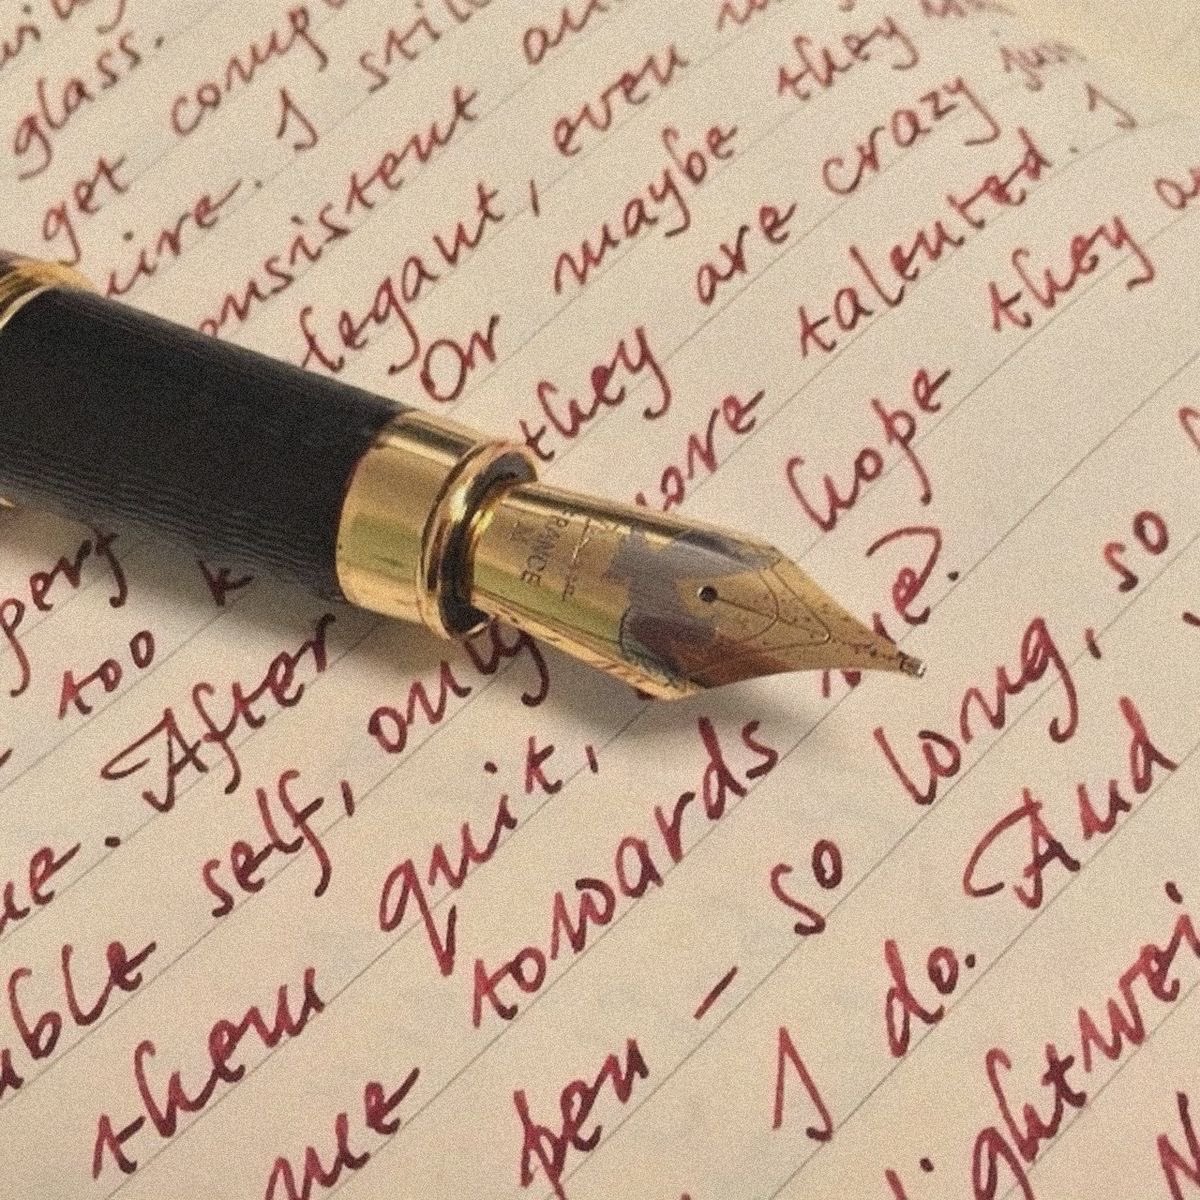 glass.
get comp
uire. I still
onsistent an
elegant, even
Or maybe they
they are crazy just
more talented. I
hope they a
pert
too k
ue. After
uble self, only
then quit,
me towards me.
pen – so long, so
I do. And
lightwei